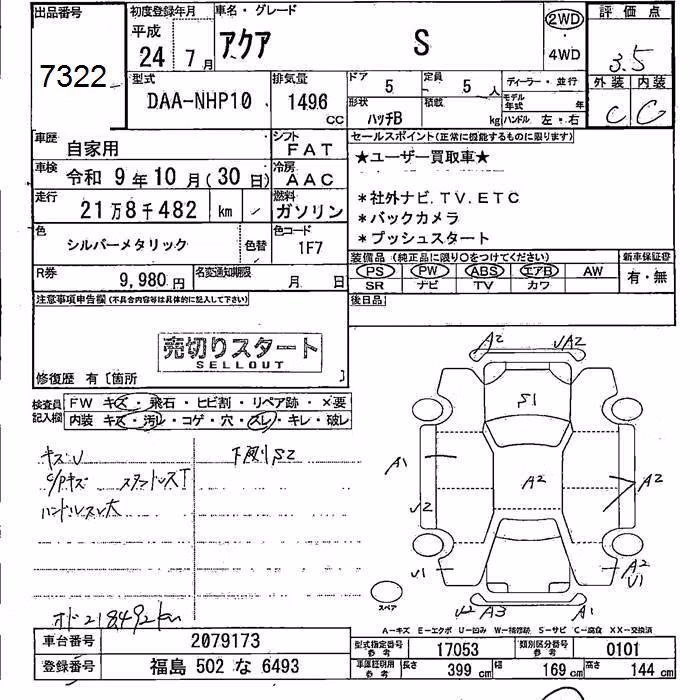 出品番号
7322
初度登録年月
平成
24 7月
車名・グレード
アクア S
2WD
・
4WD
評価点
3.5
外装 内装
C C
型式
DAA-NHP10
排気量
1496
CC
ドア 5
定員 5 人
形状 ハッチB
積載 kg
ディーラー・並行
モデル年式 年
ハンドル 左・右
車歴 自家用
シフト FAT
車検 令和 9年10月(30日)
冷房 AAC
走行 21万8千482 km
燃料 ガソリン
色 シルバーメタリック
色替
色コード 1F7
R券 9,980円
名変通知期限 月 日
セールスポイント(正常に機能するものに限ります)
★ユーザー買取車★
*社外ナビ.TV.ETC
*バックカメラ
*プッシュスタート
装備品 (純正品に限り○をつけてください)
PS PW ABS エアB AW
SR ナビ TV カワ
新車保証書
有・無
後日品
注意事項申告欄(不具合内容等は具体的に記入して下さい)
売切りスタート
SELLOUT
修復歴 有〔箇所 〕
検査員記入欄
FW キズ・飛石・ヒビ割・リペア跡・×要
内装 キズ・汚レ・コゲ・穴・スレ・キレ・破レ
キズU
C/Pキズ
ハンドルスレ大
下廻りS2
オド218492km
A2 UA2
S1
A1 A2 A2
U2
U1 A2
U1
U2 A3 A1
スペア
A-キズ E-エクボ U-凹み W-補修跡 S-サビ C-腐食 XX-交換済
車台番号 2079173
登録番号 福島 502 な 6493
型式指定番号 参考 17053
類別区分番号 参考 0101
車庫証明用 参考
長さ 399 cm
幅 169 cm
高さ 144 cm